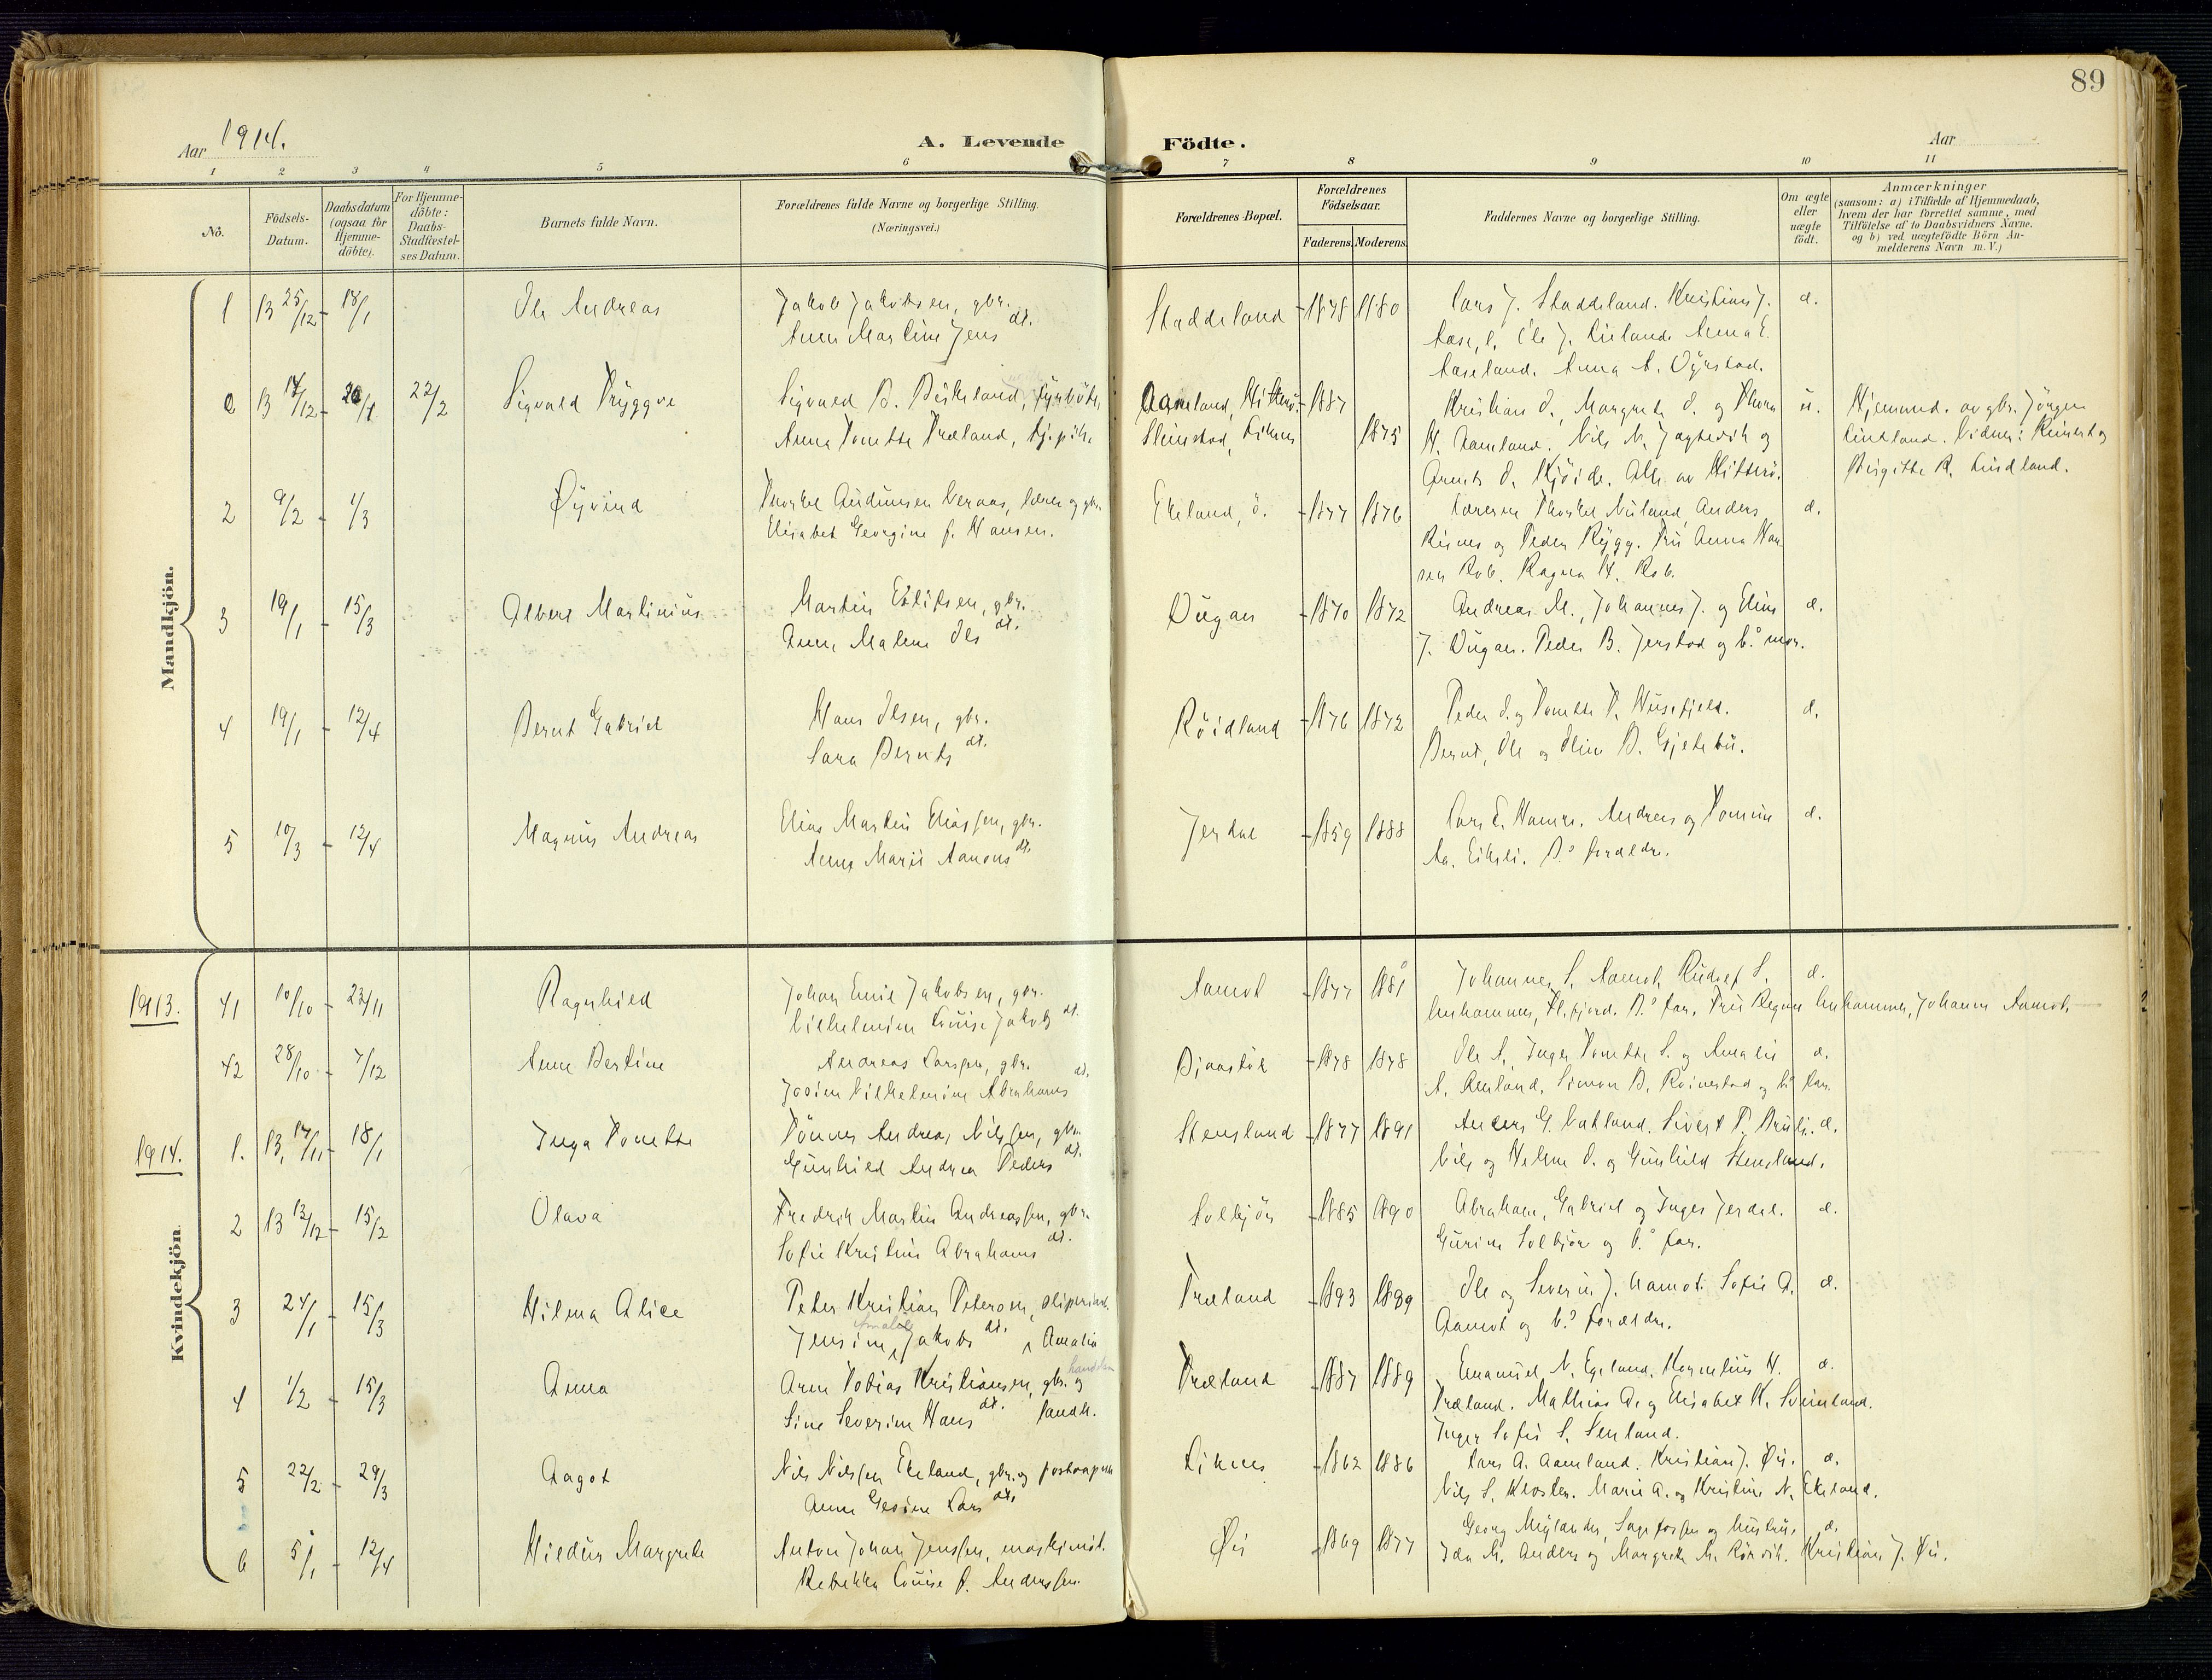 89
Aar 1914.
A. Levende Födte.
Aar
1 2 3 4 5 6 7 8 9 10 11
No.
Födsels-Datum.
Daabsdatum (ogsaa for Hjemme-döbte).
For Hjemme-döbte: Daabs-Stadfæstel-ses Datum.
Barnets fulde Navn.
Forældrenes fulde Navne og borgerlige Stilling. (Næringsvei.)
Forældrenes Bopæl.
Forældrenes Födselsaar.
Faderens. Moderens.
Faddernes Navne og borgerlige Stilling.
Om ægte eller uægte födt.
Anmærkninger (saasom: a) i Tilfælde af Hjemmedaab, hvem der har forrettet samme, med Tilföielse af to Daabsvidners Navne, og b) ved uægtefödte Börn An-melderens Navn m. V.)
Mandkjön.
1 13 25/12 - 18/1 Ole Andreas Jakob Jakobsen, gbr. Staddeland - 1878 1880 Lars J. Staddeland. Kristians J.
Anne Martine Jens dt.
Aaseland. Anna A. Dyrstad.
2 13 14/12 - 22/2 Sigvald Tryggve Sigvald B. Birkeland, fyrböter, Aamland, Hitterö. - 1887 Kristian O., Margrete O. og Thora
Anna Tonette Træland, tj.pike 1875 H. Aamland. Nils N. Jagtevik og
Hjemmed. av gbr. Jörgen
Lindland. Vidner: Reinert og
Birgitte R. Lindland.
2 9/2 - 1/3 Øyvind Thorkel Audunsen Veraas, lærer og gbr. Ekeland, ö. - 1877 1876 Lærerne Thorkel Nuland, Anders
Elisabet Georgine f. Hansen. Risnes og Peder Rygg. Fru Anna Han
sen Rob. Ragna H. Rob.
3 19/1 - 15/3 Albert Martinius Martin Eilifsen, gbr. Dugan - 1870 1872 Andreas M., Johannes J. og Eline
Anne Malene Ols dt. J. Dugan. Peder B. Jerstad og b.s mor.
4 19/1 - 12/4 Bernt Gabriel Hans Olsen, gbr. Röidland - 1876 1872 Peder O. og Tonette P. Husefjeld.
Sara Bernts dt. Bernt, Ole og Oline B. Gjetebu.
5 10/3 - 12/4 Magnus Andreas Elias Martin Eliassen, gbr. Jerdal - 1859 1888 Lars E. Hamre. Andreas og Tomine
Anne Marie Aanons dt. Aa. Eikeli. B.s forældre.
Kvindekjön
1913. 41 10/10 - 23/11 Ragnhild Johan Emil Jakobsen, gbr. Aamot - 1877 1881 Johannes S. Aamot, Rudolf S.
Vilhelmine Louise Jakobs dt. Urhammer, Fl.fjord. B.s far. Fru Regine Urhammer, Johanne Aamot.
42 28/10 - 7/12 Anne Bertine Andreas Larssen, gbr. - 1878 1878 Ole A., Inger Tonette S. og Amalie
Josine Vilhelmine Abrahams dt. Simon B. Röinestad og b.s far.
1914. 1. 13, 14/11 - 18/1 Inga Tonette Tönnes Andreas Nilssen, gbr. Stensland - 1877 1891 Anders G. Vatland. Sivert P. Bruli.
Gunhild Andrea Peders dt. Nils og Helene O. og Gunhild Stensland.
2 13 13/12 - 15/2 Olava Fredrik Martin Andreassen, gbr. Solbjör - 1885 1890 Abraham, Gabriel og Inger Jerdal.
Sofie Kristine Abrahams dt. Gurine Solbjör og b.s far.
3 24/1 - 15/3 Hilma Alice Peter Kristian Peterson, sliperiarb. Træland - 1893 1889 Ole og Severin J. Aamot. Sofie A.
Jensine Jakobs dt. Amalia Aamot og b.s forældre.
4 1/2 - 15/3 Anna Aren Tobias Kristiansen, gbr. og landh. Træland - 1887 1889 Emanuel N. Egeland. Kornelius H.
Sine Severine Hans dt. Træland. Mathias A. og Elisabet H. Svinland.
Inger Sofie S. Stuland.
5 22/2 - 29/3 Aagot Nils Nilssen Ekeland, gbr. og postaapner Liknes - 1862 1886 Lars A. Aamland. Kristian J. Øie.
Anne Gesine Lars dt. Nils S. Kloster. Marie A. og Kristine N. Ekeland.
6 5/1 - 12/4 Hildur Margrete Anton Johan Jenssen, maskinist. Øie - 1869 1877 Georg Mylander,
Rebekka Louise f. Anderssen. Ida M. Anders og Margrete M. Rörvik. Kristian J. Øie.